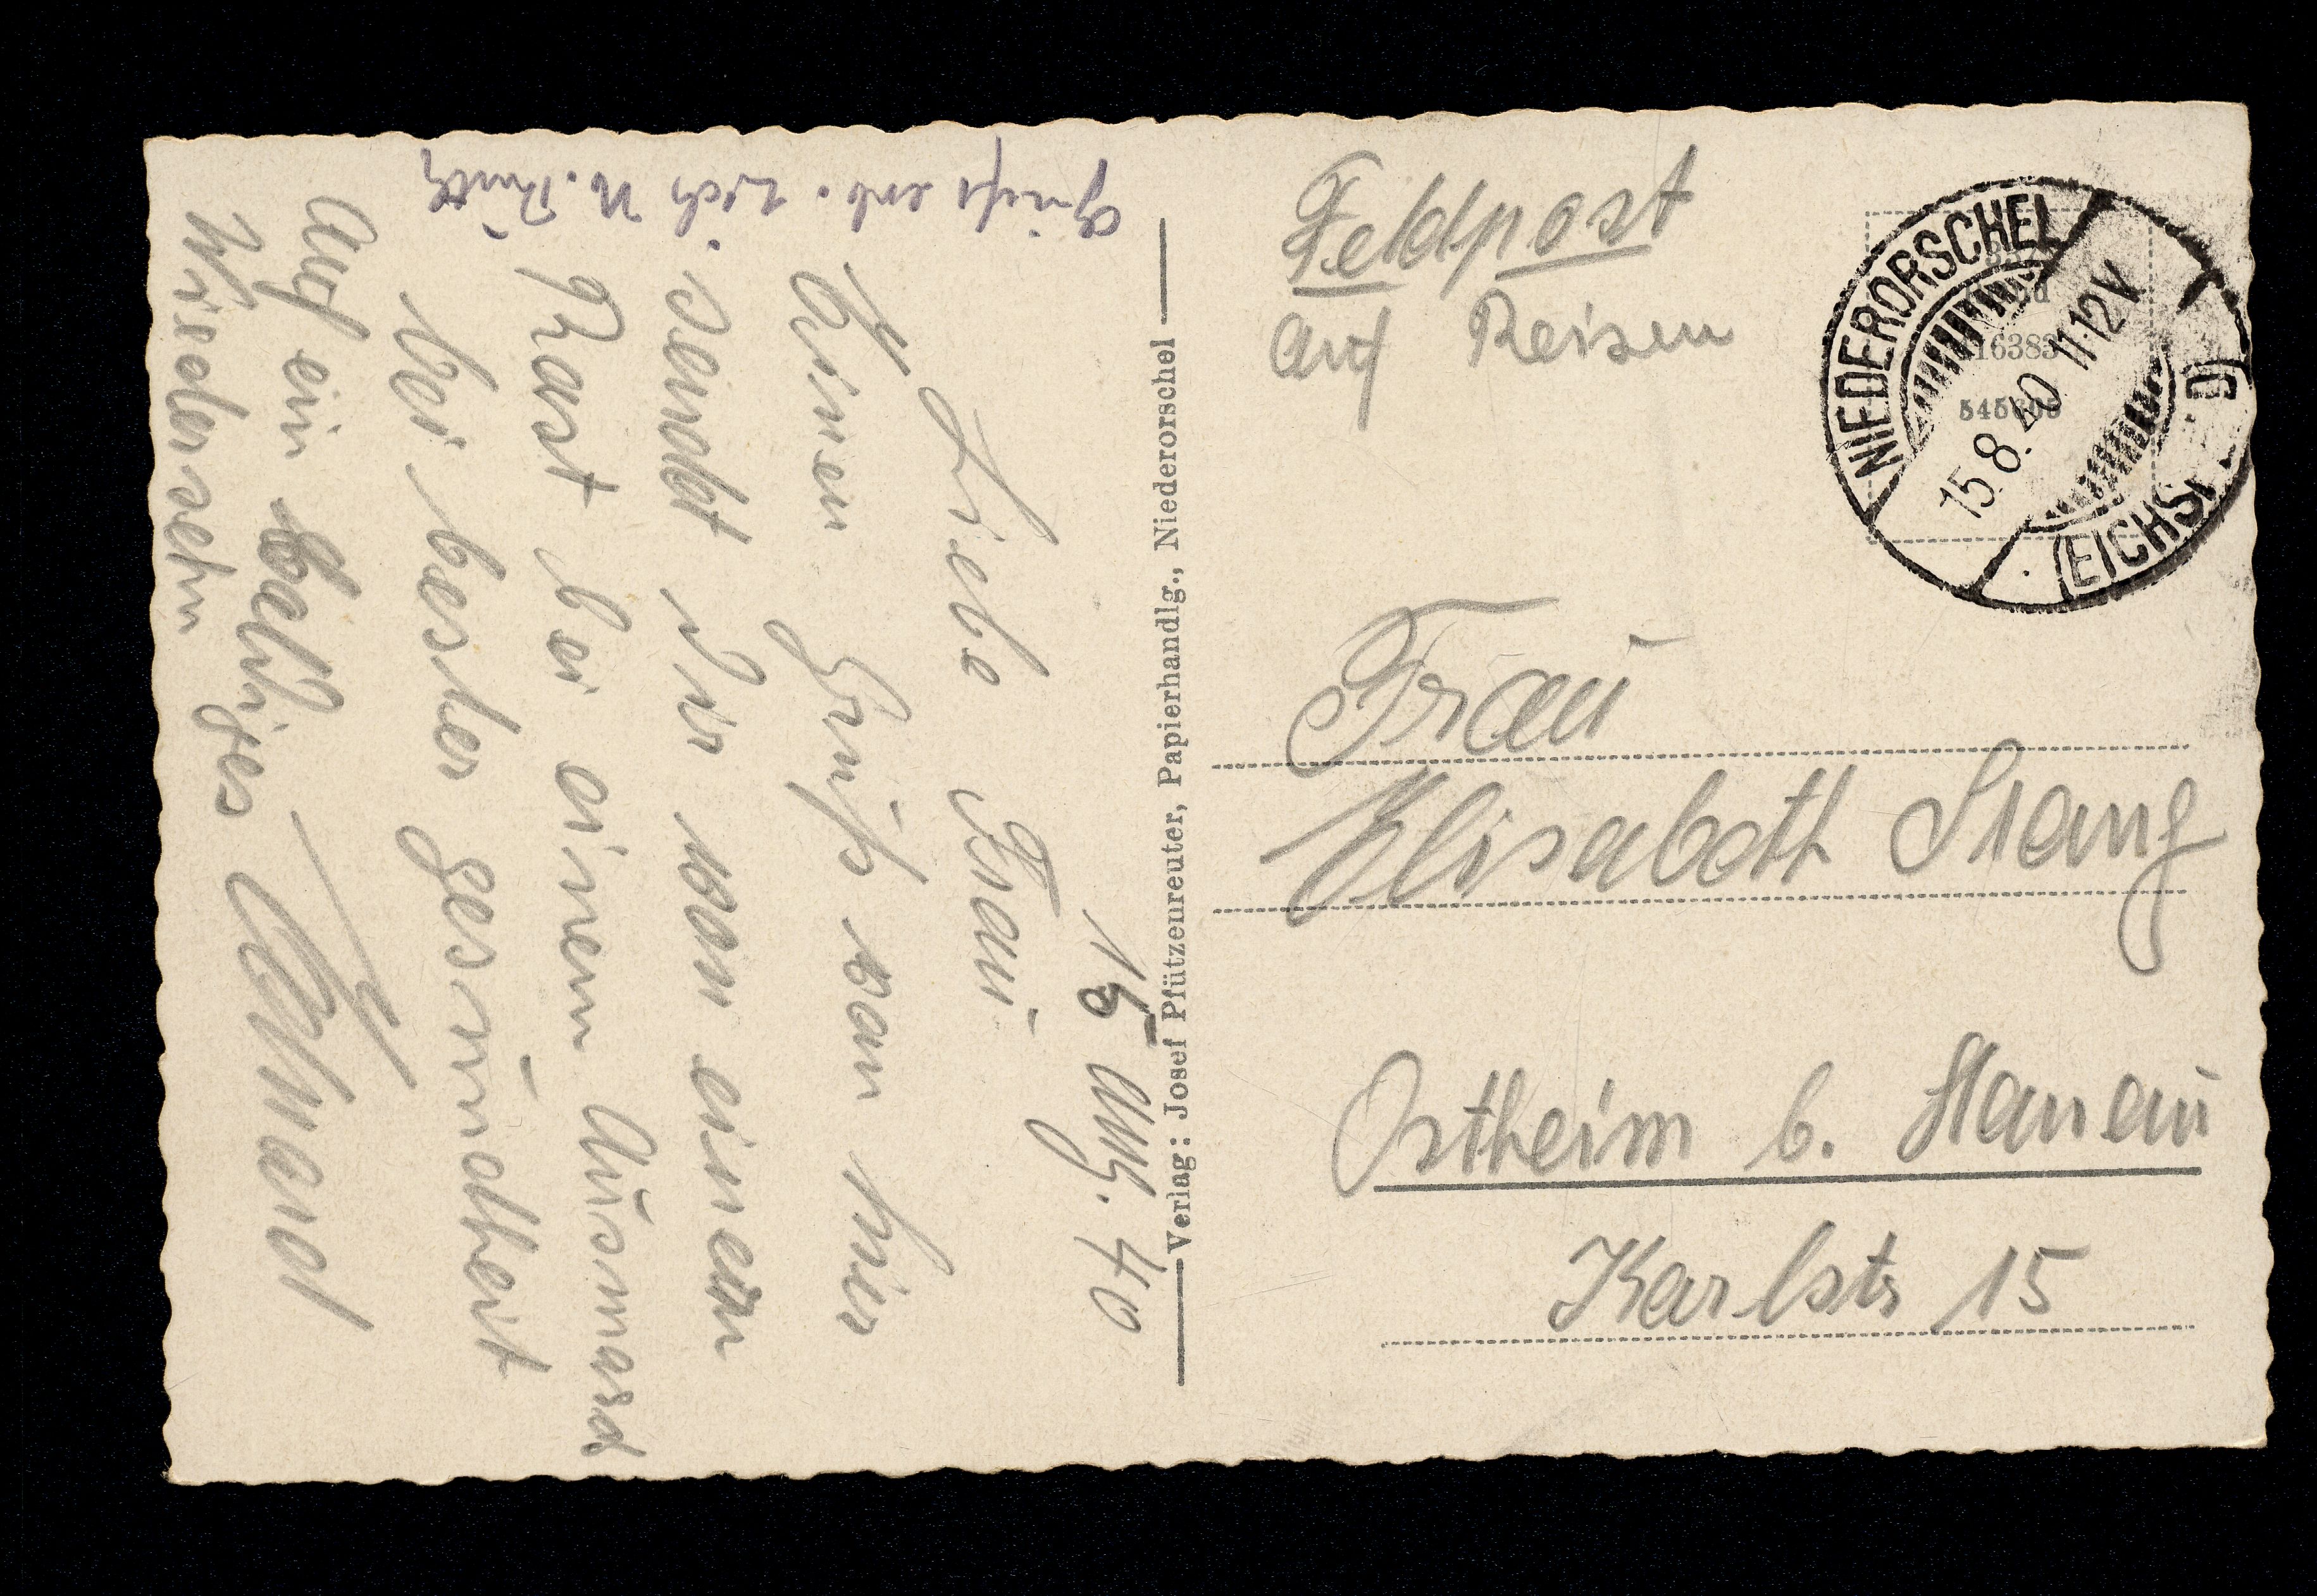 15 Aug. 40
Liebe Frau
Einen Gruß von hier
sendet Dir von einem
Rast bei einem Ausmarsch
bei bester Gesundheit
Auf ein baldiges
Wiedersehn
Gruß
Feldpost
Auf Reisen
NIEDERORSCHEL
15.8.40 11-12V
(EICHSF.)
16383
Frau
Elisabeth Stang
Ostheim b. Hanau
Karlstr 15
Verlag: Josef Pfützenreuter, Papierhandlg., Niederorschel